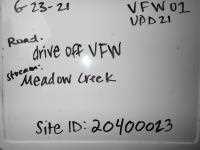 6-23-21
VFW01
UPD21
Road:
drive off VFW
Stream:
Meadow Creek
Site ID: 20400023